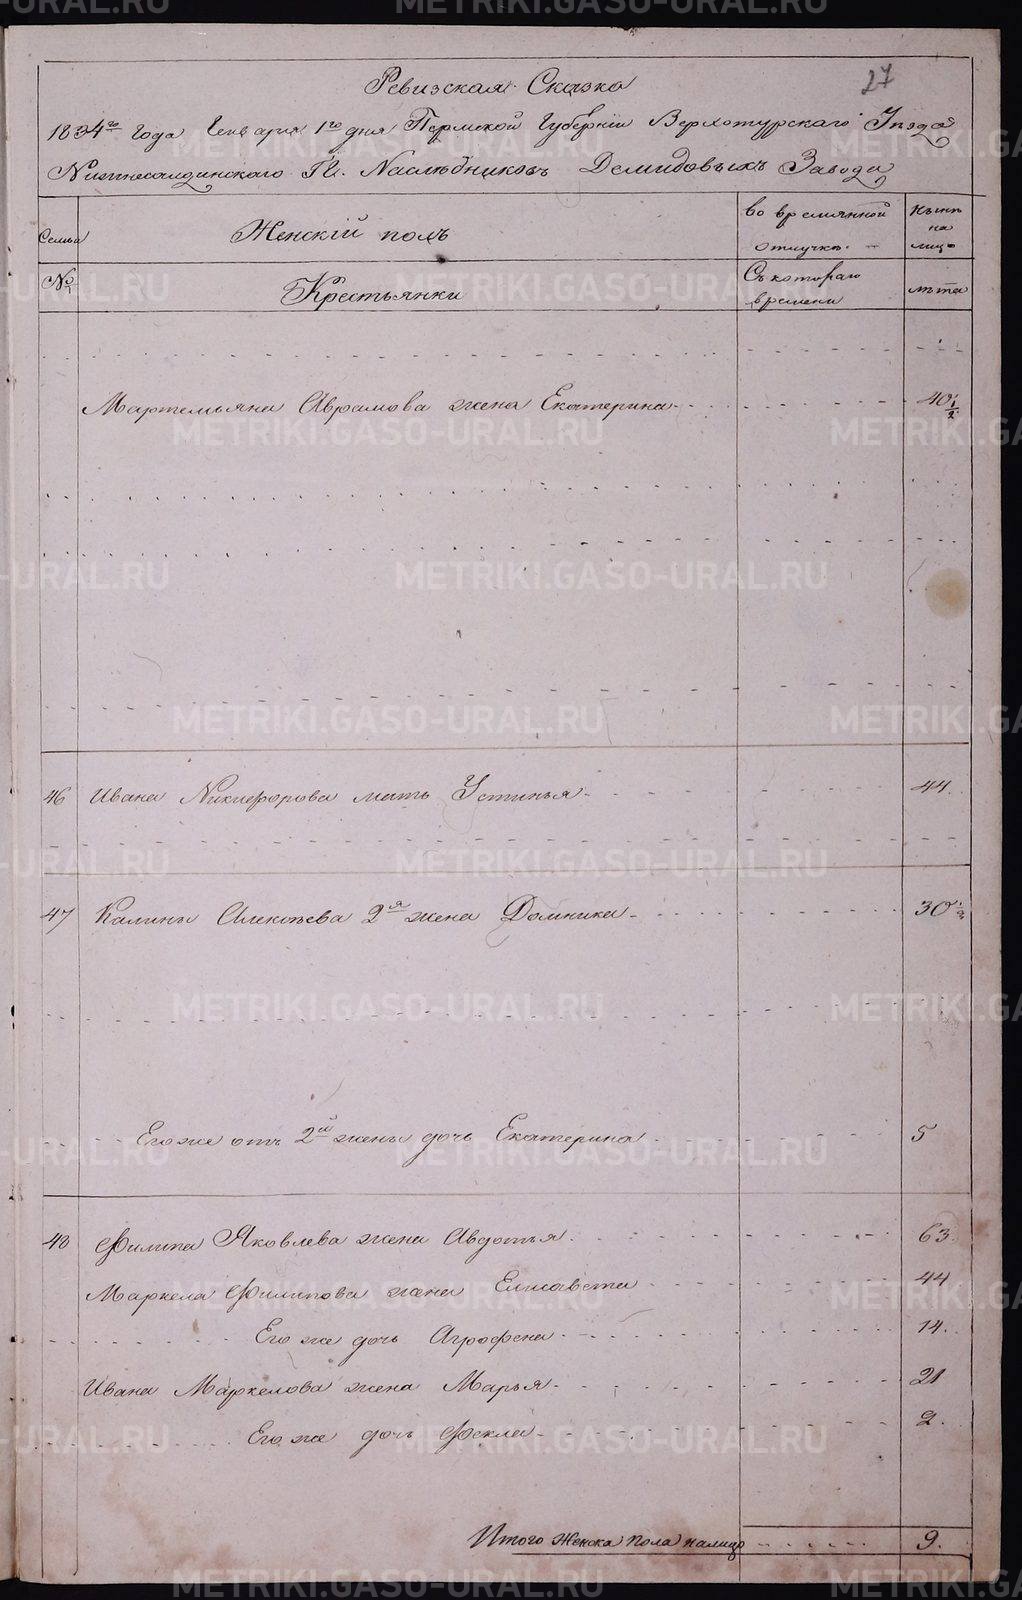 27
Ревизская Сказка
1834го года Генваря 1го дня Пермской Губернии Верхотурскаго Уезда
Нижнесалдинскаго Гг. Наследниковъ Демидовыхъ Завода
Семьи
Женскій полъ
во времянной отлучке.
ныне на лицо
№
Крестьянки
Съ котораго времени
лѣта
Мартемьяна Аврамова жена Екатерина 40 1/2
46 Ивана Никифорова мать Устинья 44.
47 Калины Алексѣева 2я жена Домника 30 1/2
Его же отъ 2ой жены дочь Екатерина 5
48 Филипа Яковлева жена Авдотья 63.
Маркела Филипова жена Елисавета 44
Его же дочь Агрофена 14.
Ивана Маркелова жена Марья 21
Его же дочь Фекла 2.
Итого женска пола налицо 9.
METRIKI.GASO-URAL.RU